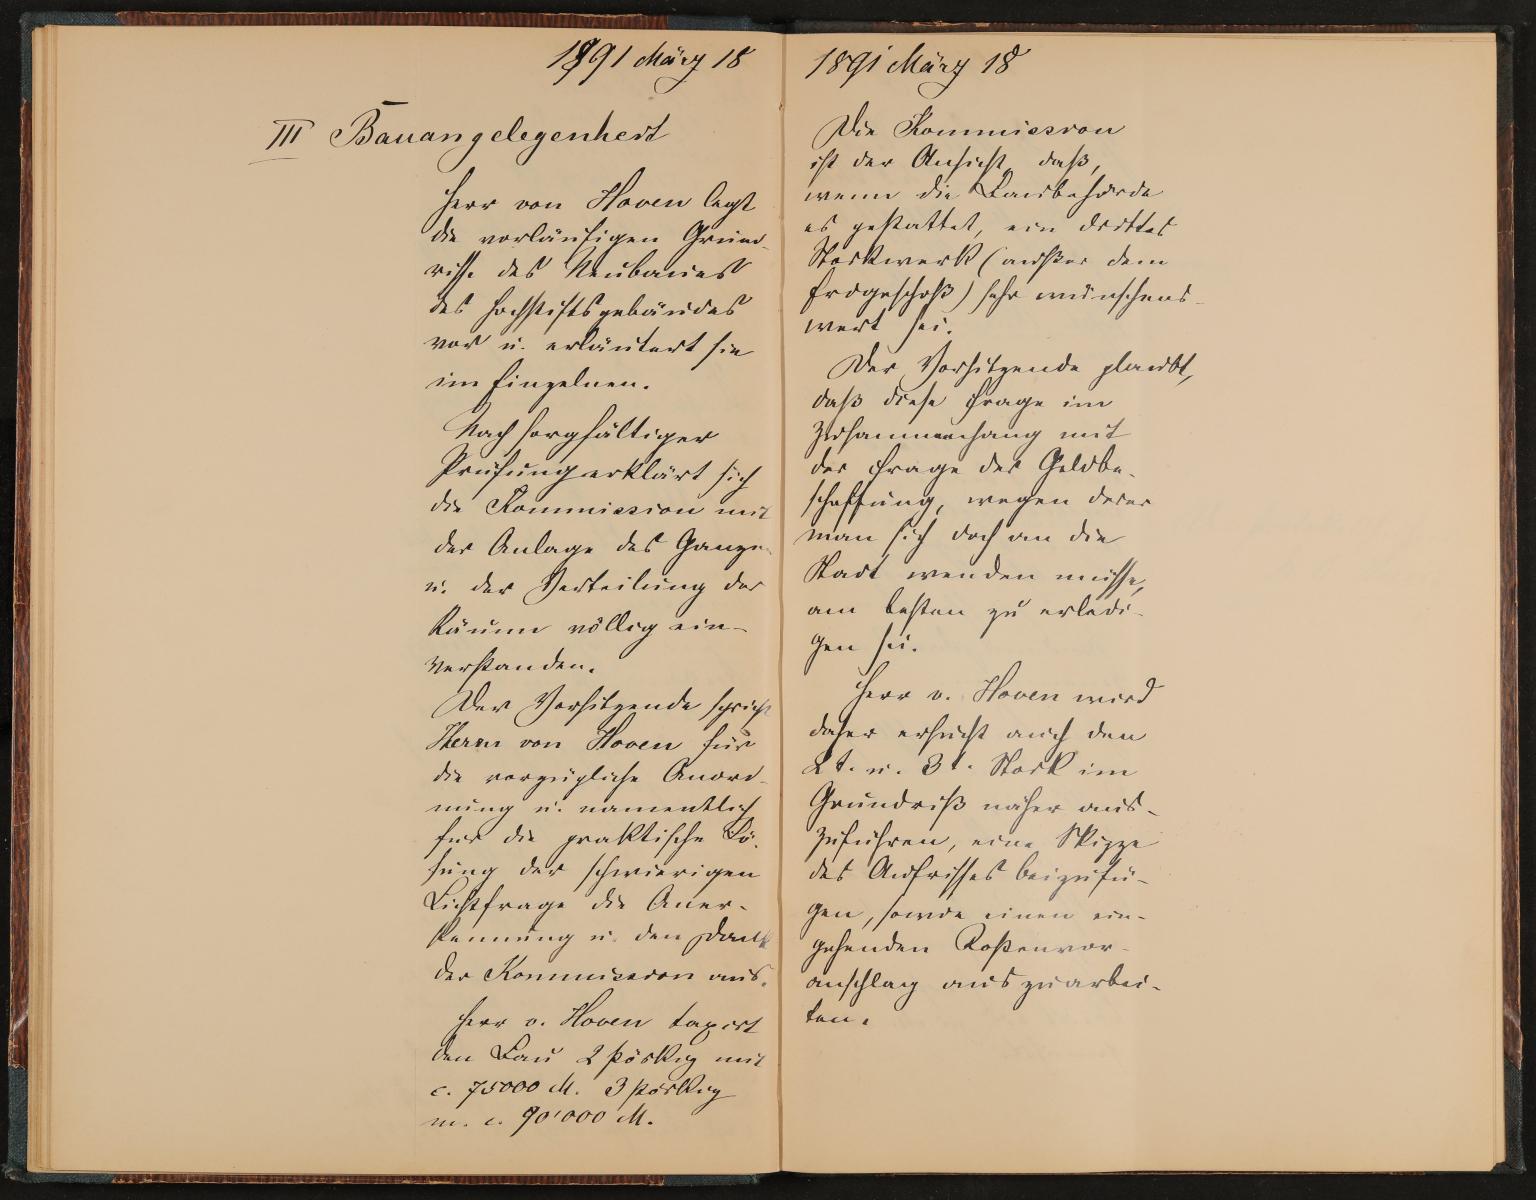 1891 März 18
III Bauangelegenheit
Herr von Hoven legt
die vorläufigen Grund-
risse des Neubaues
des Hochstiftsgebäudes
vor u. erläutert sie
im Einzelnen.
Nach sorgfältiger
Prüfung erklärt sich
die Kommission mit
der Anlage des Ganzen
u. der Verteilung der
Räume völlig ein-
verstanden.
Der Vorsitzende spricht
Herrn von Hoven für
die vorzügliche Anord-
nung u. namentlich
für die praktische Lö-
sung der schwierigen
Lichtfrage die Aner-
kennung u. den Dank
der Kommission aus.
Herr v. Hoven taxirt
den Bau 2 stöckig mit
c. 75000 M. 3 stöckig
m. c. 90'000 M.
1891 März 18
Die Kommission
ist der Ansicht, daß,
wenn die Baubehörde
es gestattet, ein drittes
Stockwerk (außer dem
Erdgeschoß) sehr wünschens-
wert sei.
Der Vorsitzende glaubt,
daß diese Frage im
Zusammenhang mit
der Frage der Geldbe-
schaffung, wegen derer
man sich doch an die
Stadt wenden müsse,
am besten zu erledi-
gen sei.
Herr v. Hoven wird
daher ersucht auch den
2t. u. 3t. Stock im
Grundriß näher aus-
zuführen, eine Skizze
des Aufrisses beizufü-
gen, sowie einen ein-
gehenden Kostenvor-
anschlag auszuarbei-
ten.